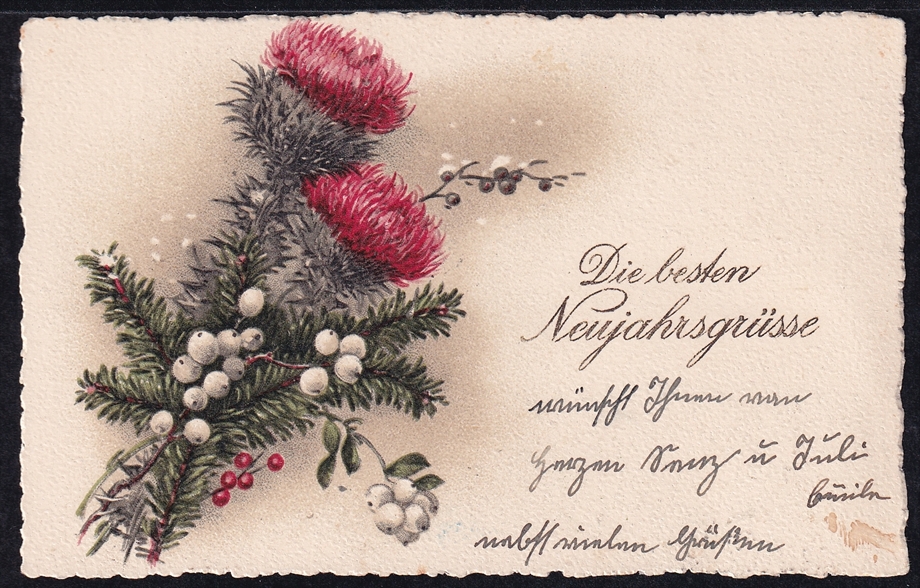 Die besten
Neujahrsgrüsse
wünscht Ihnen von
Herzen u Juli
nebst vielen Grüßen